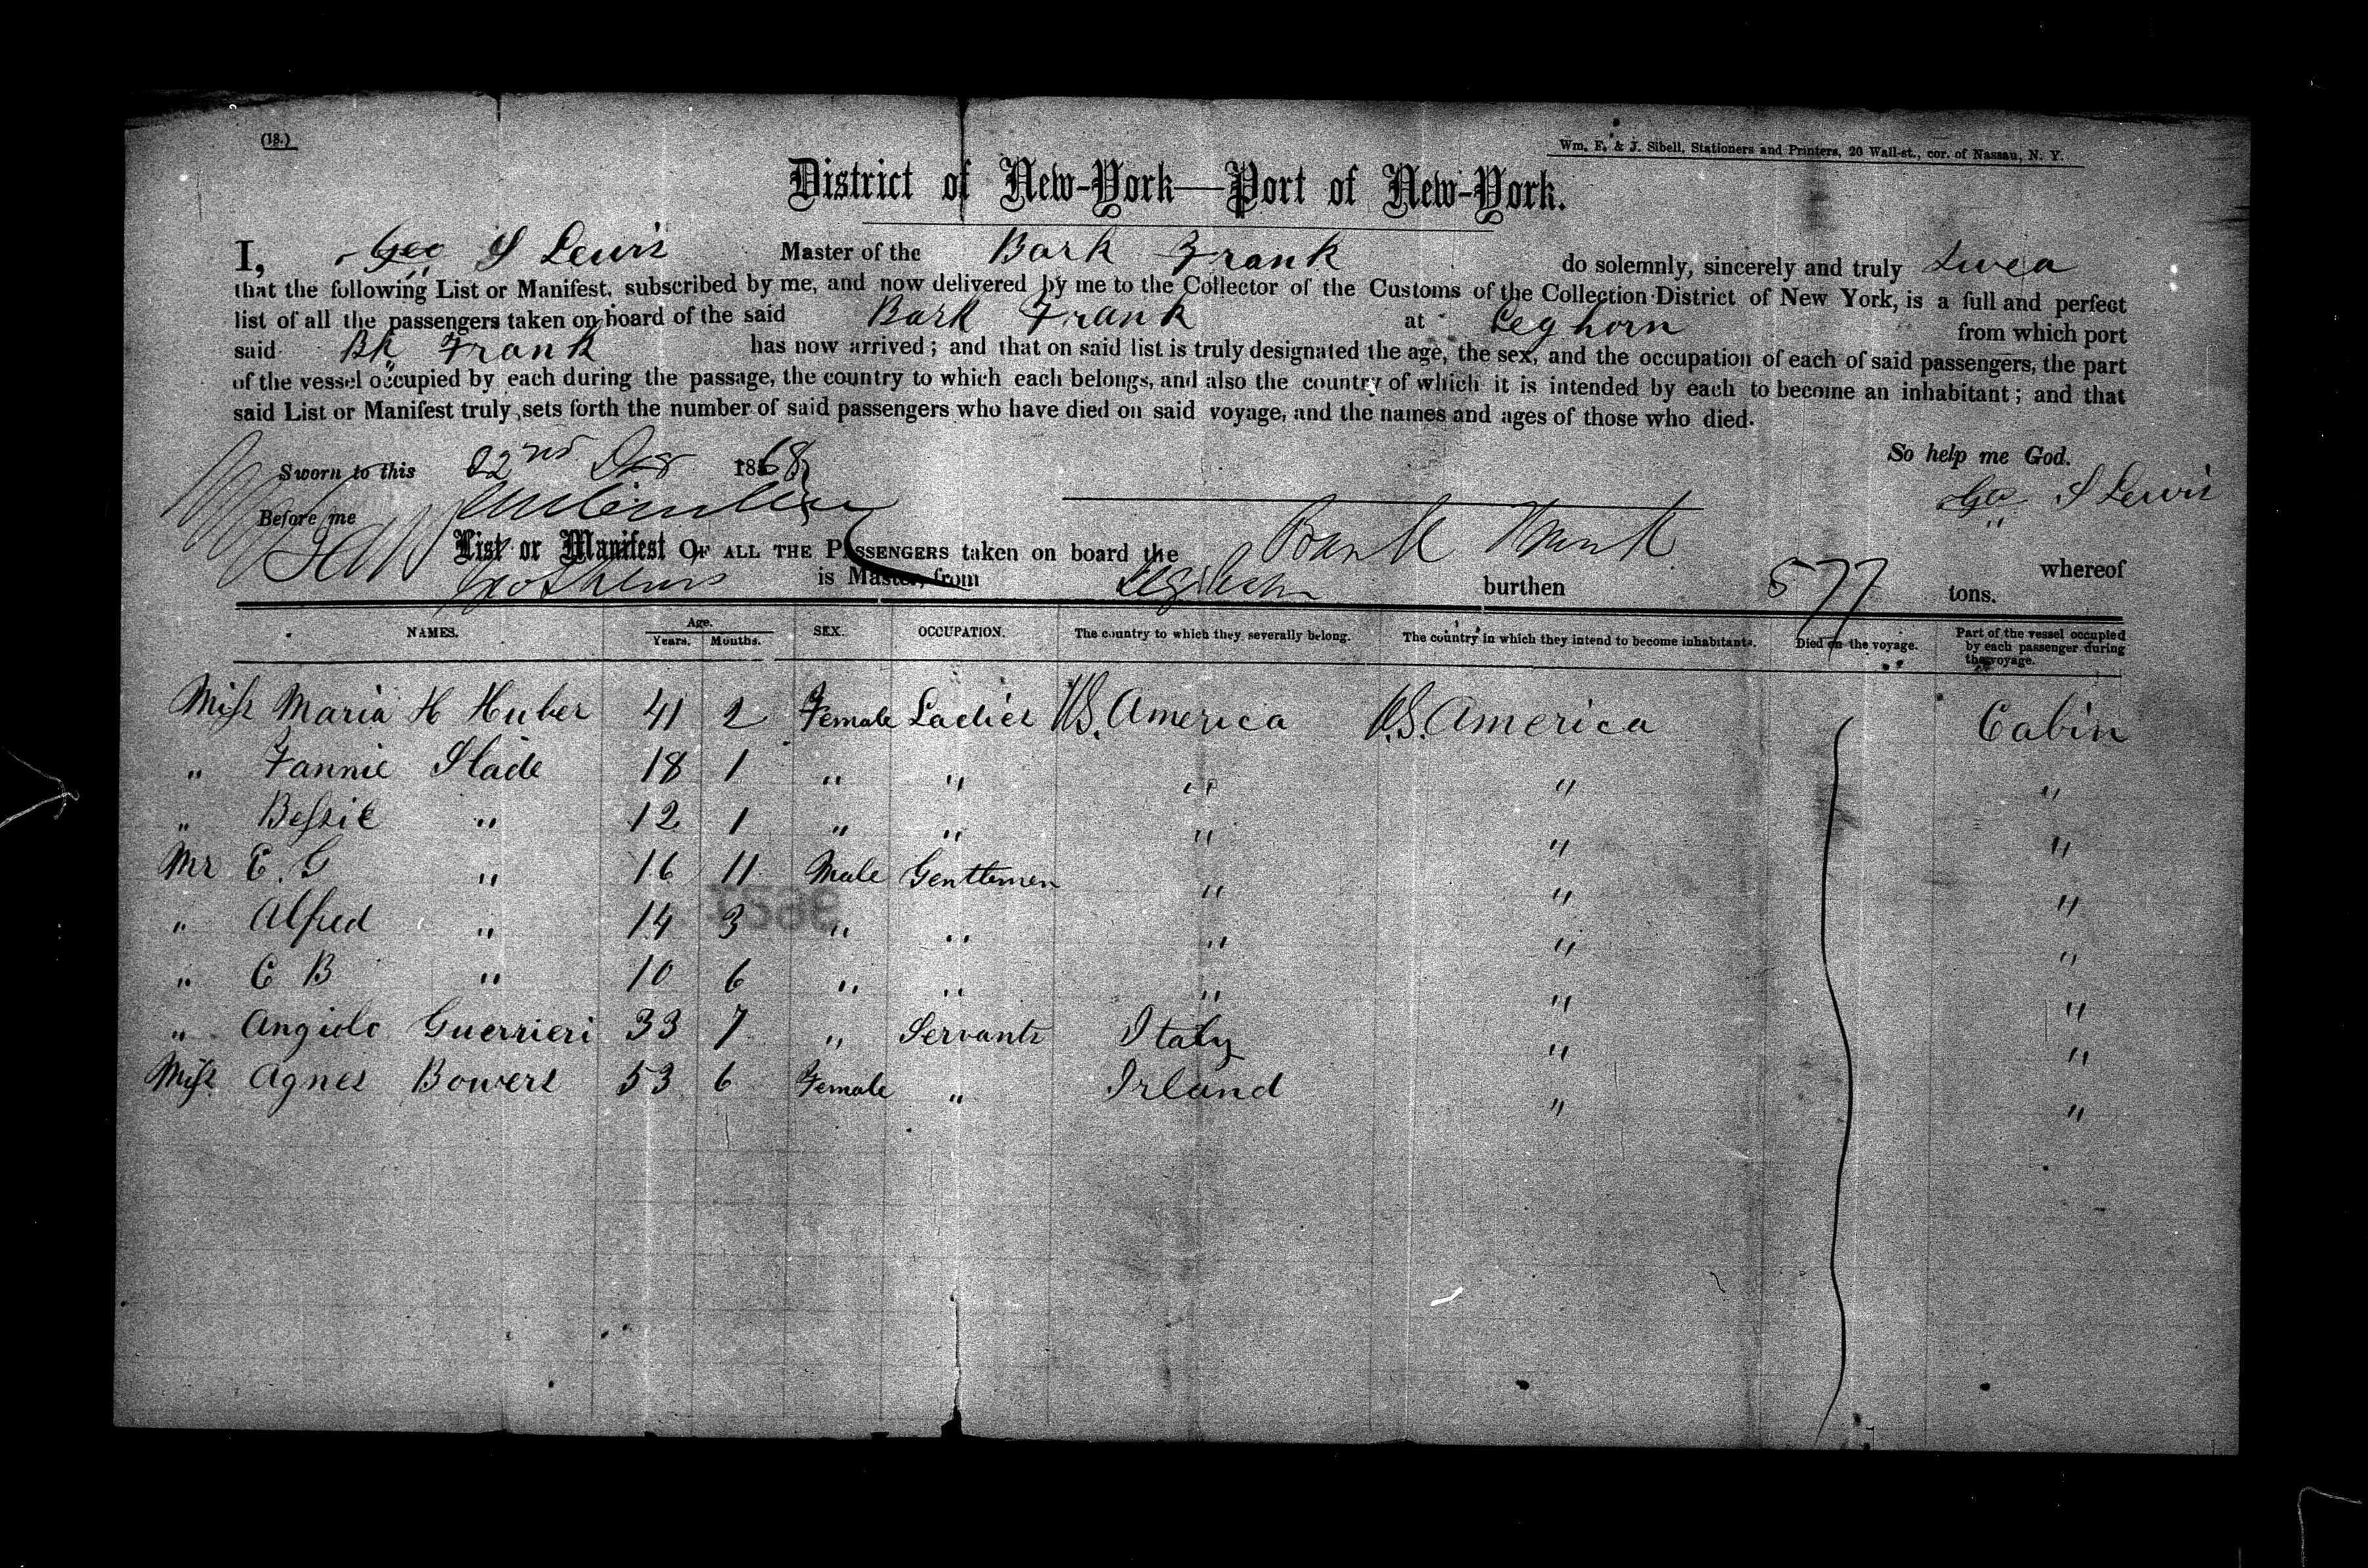 (18.)
Wm. E. & J. Sibell, Stationers and Printers, 20 Wall-st., cor. of Nassau, N. Y.
District of New-York—Port of New-York.
I, Geo S Lewis Master of the Bark Frank do solemnly, sincerely and truly
that the following List or Manifest, subscribed by me, and now delivered by me to the Collector of the Customs of the Collection District of New York, is a full and perfect
list of all the passengers taken on board of the said Bark Frank at Leghorn from which port
said Bk Frank has now arrived; and that on said list is truly designated the age, the sex, and the occupation of each of said passengers, the part
of the vessel occupied by each during the passage, the country to which each belongs, and also the country of which it is intended by each to become an inhabitant; and that
said List or Manifest truly sets forth the number of said passengers who have died on said voyage, and the names and ages of those who died.
So help me God.
Sworn to this 22nd Dec 1868
Geo S Lewis
Before me
List or Manifest OF ALL THE PASSENGERS taken on board the Bark Frank whereof
Geo S Lewis is Master, from Leghorn burthen 577 tons.
NAMES. Age. Years. Months. SEX. OCCUPATION. The country to which they severally belong. The country in which they intend to become inhabitants. Died on the voyage. Part of the vessel occupied by each passenger during the voyage.
Miss Maria H Huber 41 2 Female Ladies U.S. America U.S. America Cabin
" Fannie Slade 18 1 " " " " "
" Bessie " 12 1 " " " " "
Mr E. G " 16 11 Male Gentlemen " " "
" Alfred " 14 3 " " " " "
" C B " 10 6 " " " " "
" Angiolo Guerrieri 33 7 " Servants Italy " "
Miss Agnes Bowers 53 6 Female " Irland " "